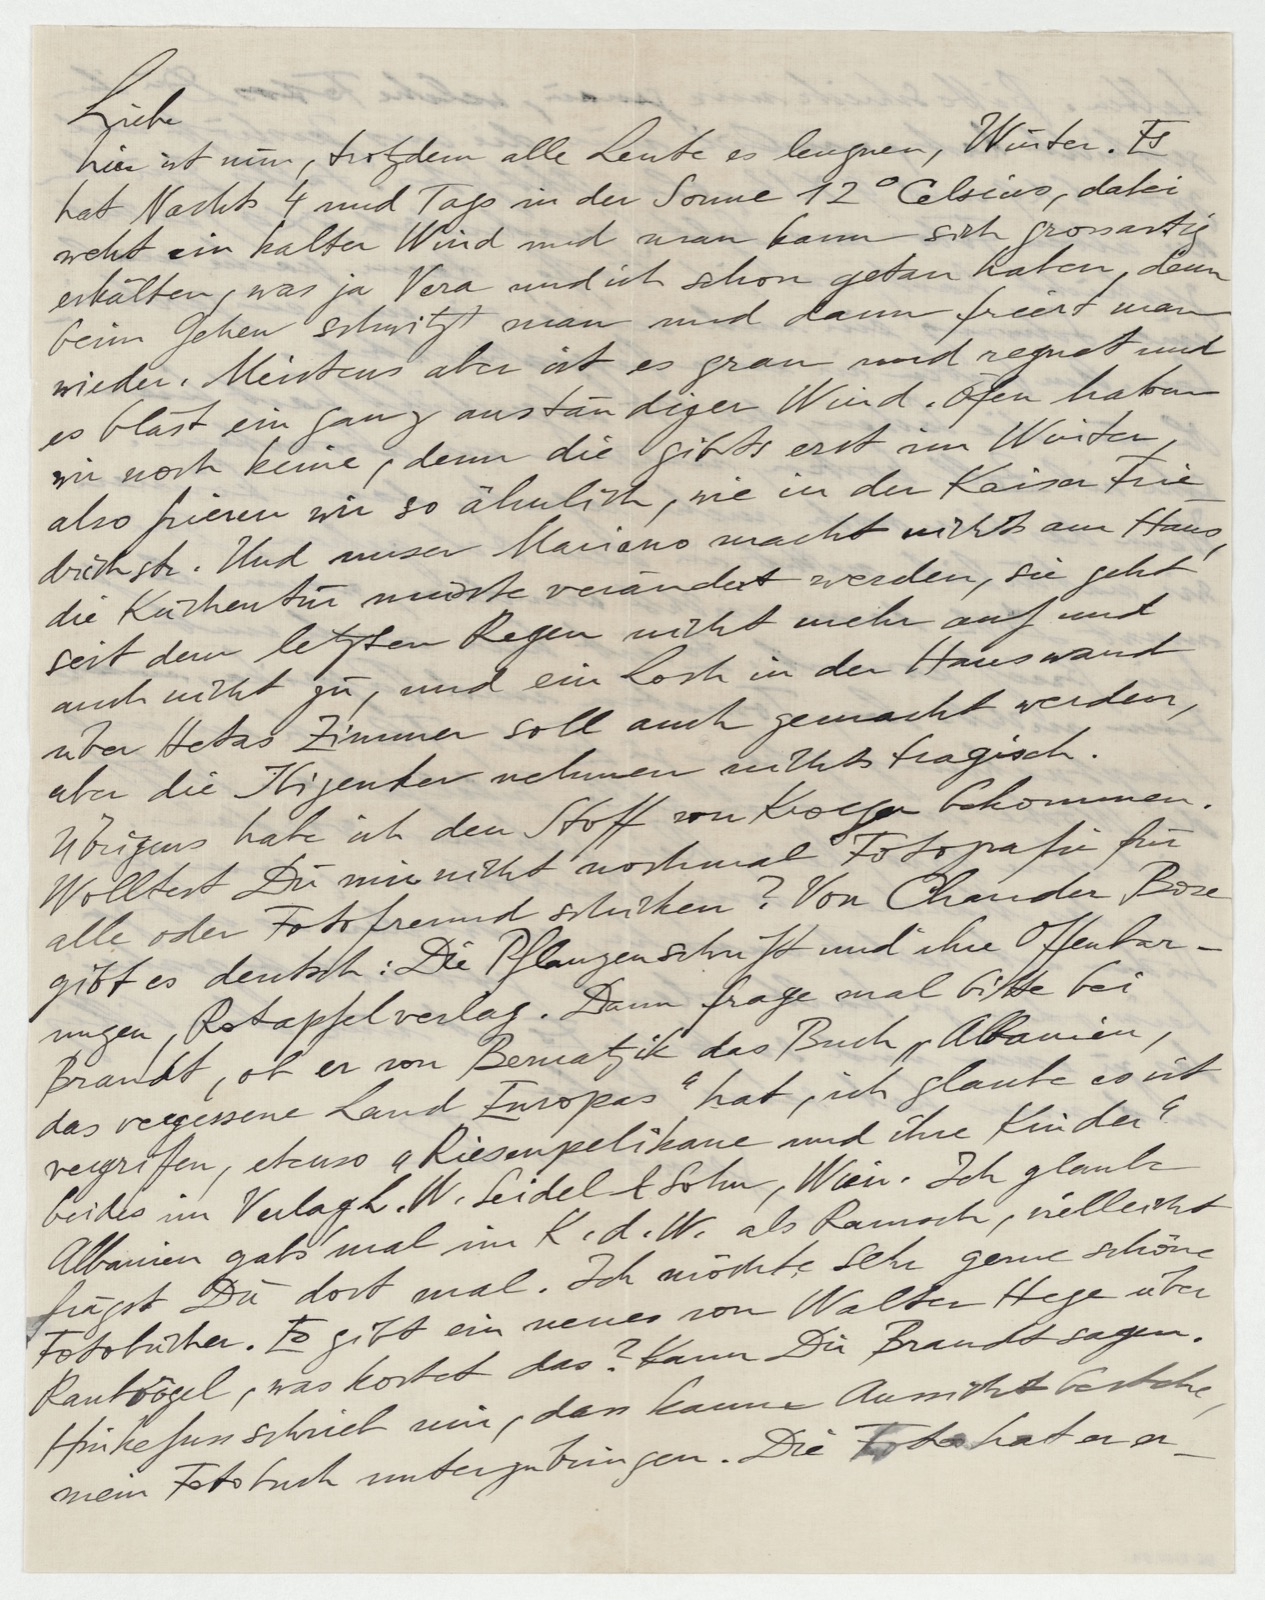 Liebe
hier ist nun, trotzdem alle Leute es leugnen, Winter. Es
hat Nachts 4 und Tags in der Sonne 12° Celsius, dabei
weht ein kalter Wind und man kann sich grossartig
erkälten, was ja Vera und ich schon getan haben, denn
beim Gehen schwitzt man und dann friert man
wieder. Meistens aber ist es grau und regnet und
es bläst ein ganz anständiger Wind. Öfen haben
wir noch keine, denn die gibts erst im Winter,
also frieren wir so ähnlich, wie in der Kaiser Frie
drichstr. Und unser Mariano macht nichts am Haus,
die Küchentür müsste verändert werden, sie geht
seit dem letzten Regen nicht mehr auf und
auch nicht zu, und ein Loch in der Hauswand
über Hetas Zimmer soll auch gemacht werden,
aber die Ibizenker nehmen nichts tragisch.
Übrigens habe ich den Stoff von bekommen.
Wolltest Du mir nicht nochmal Fotografie für
alle oder Fotofreund schicken? Von Chander Bose
gibt es deutsch: Die Pflanzenschrift und ihre Offenbar-
ungen, Rotapfelverlag. Dann frage mal bitte bei
Brandt, ob er von Bernatzik das Buch „Albanien,
das vergessene Land Europas“ hat, ich glaube es ist
vergriffen, ebenso „Riesenpelikane und ihre Kinder“
beides im Verlag L. W. Seidel & Sohn, Wien. Ich glaube
Albanien gabs mal im K. d. W. als Ramsch, vielleicht
frägst Du dort mal. Ich möchte sehr gerne schöne
Fotobücher. Es gibt ein neues von Walter Hege über
Raubvögel, was kostet das? Kann Du Brandt sagen.
Hinkefuss schrieb mir, dass kaum Aussicht bestehe,
mein Fotobuch unterzubringen. Die Fotos hat er er-